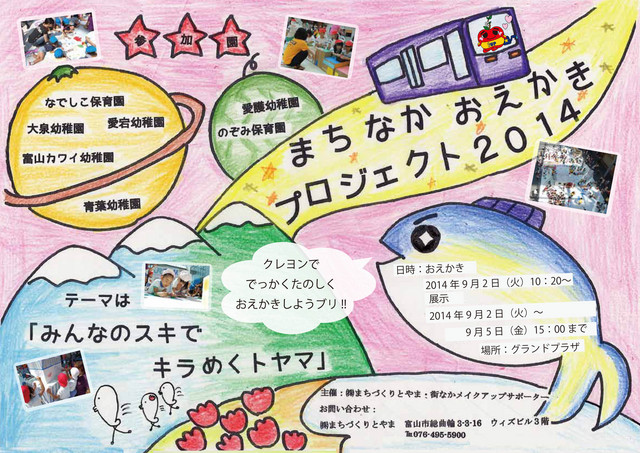 参加園
なでしこ保育園
大泉幼稚園
愛宕幼稚園
富山カワイ幼稚園
青葉幼稚園
愛護幼稚園
のぞみ保育園
まちなか おえかき
プロジェクト2014
クレヨンで
でっかくたのしく
おえかきしようブリ!!
テーマは
「みんなのスキで
キラめくトヤマ」
日時：おえかき
2014年9月2日（火）10：20～
展示
2014年9月2日（火）～
9月5日（金）15：00まで
場所：グランドプラザ
主催：㈱まちづくりとやま・街なかメイクアップサポーター
お問い合わせ：
㈱まちづくりとやま 富山市総曲輪3-3-16 ウィズビル3階
℡076-495-5900